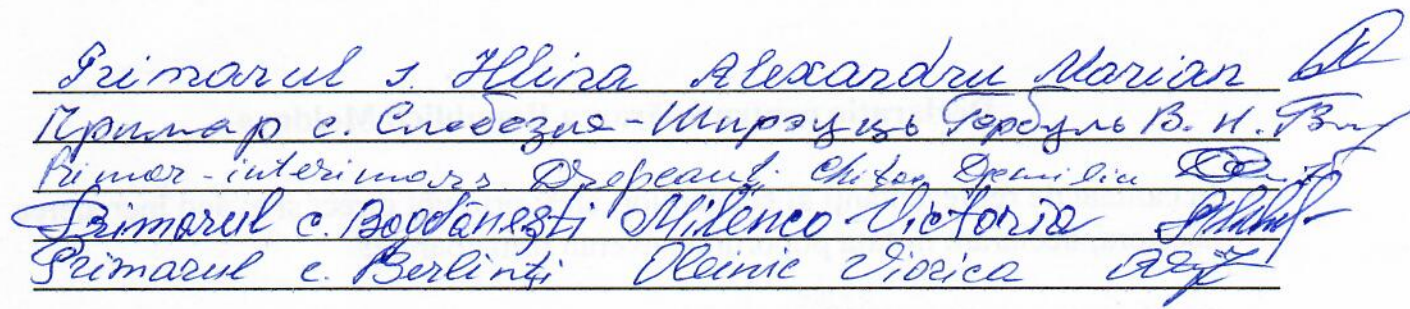 Primarul s. Hlina Alexandru Marian
Примар с. Слобозия-Ширэуць Горбуль В. Н.
Primar-interimară Drepcăuți Chitac
Primarul c. Bogdănești Milenco Victoria
Primarul c. Berlinți Oleinic Viorica